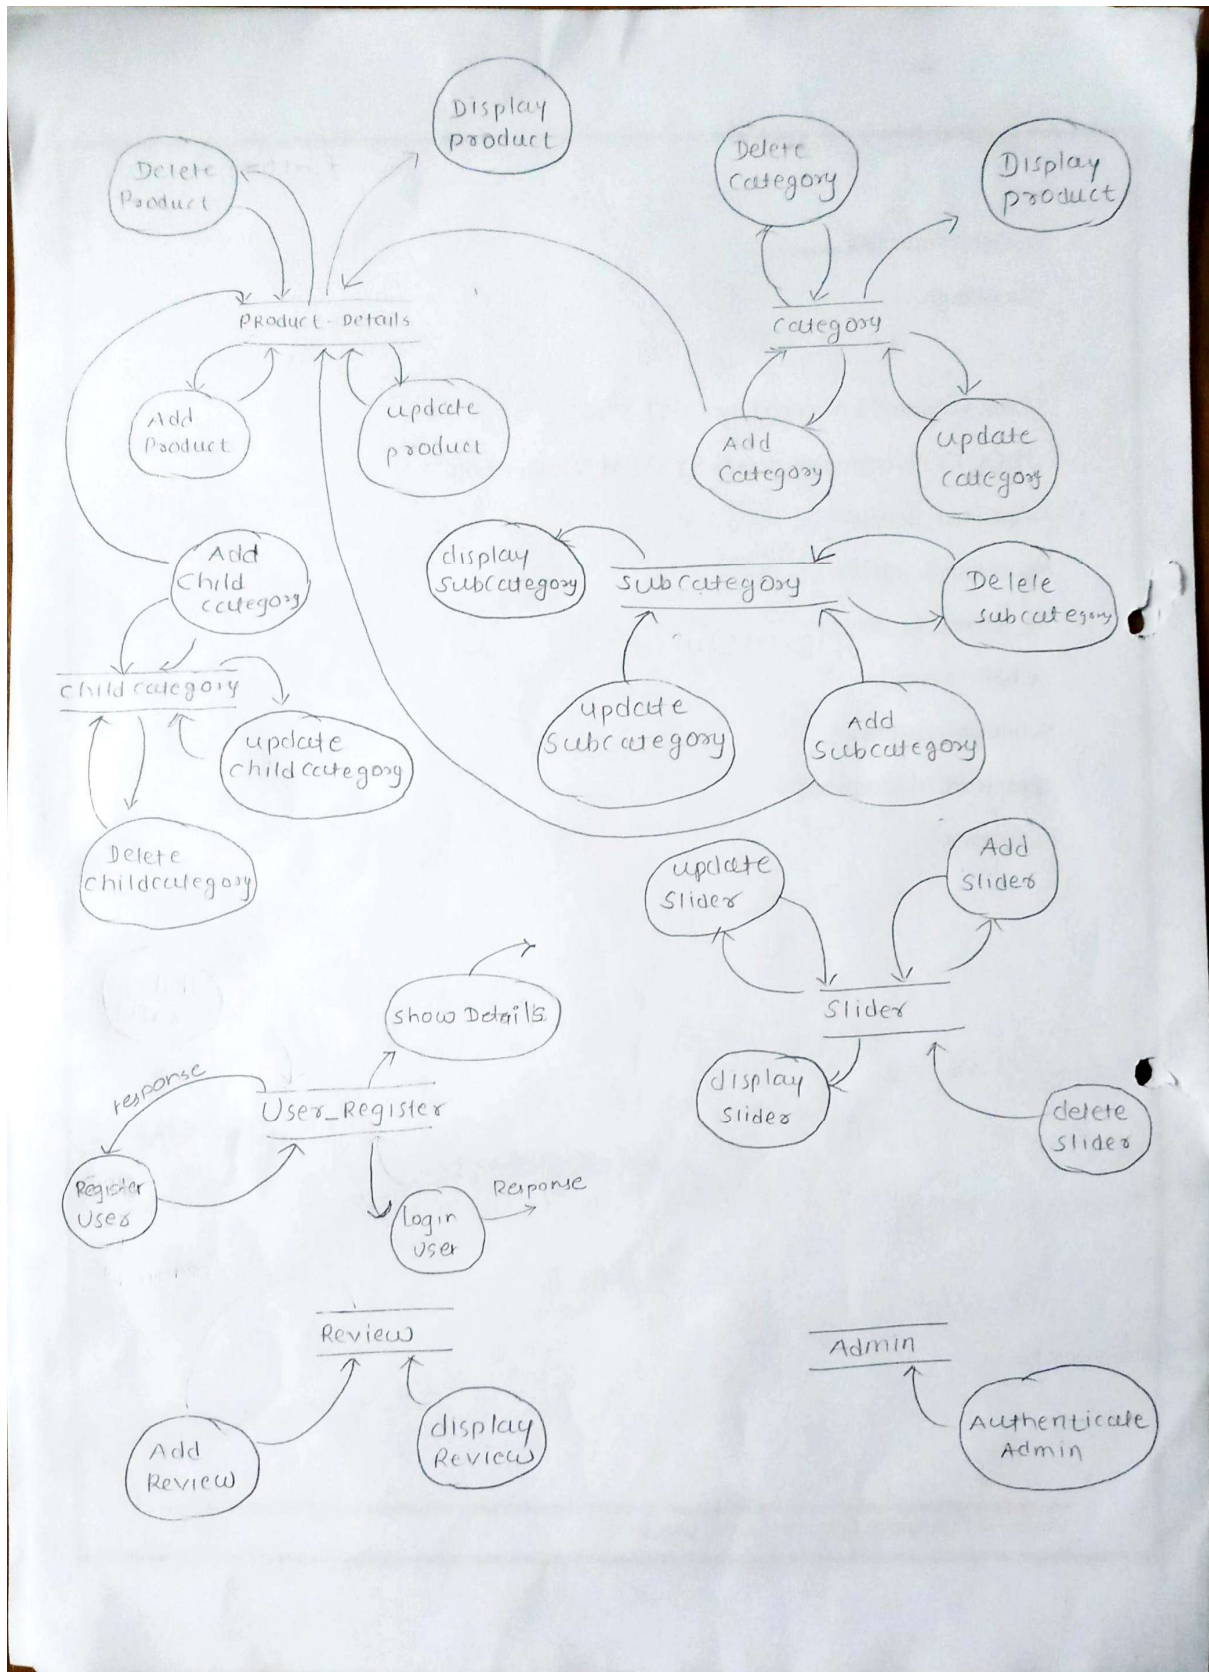 Display
product
Delete
Product
Delete
Category
Display
product
PRoduct-Details
Category
Add
Product
update
product
Add
Category
update
category
Add
Child
category
display
subcategory
subcategory
Delele
subcategory
Childcategory
update
childcategory
update
subcategory
Add
subcategory
Delete
childcategory
update
slider
Add
slider
show Details
Slider
response
User_Register
display
slider
delete
slider
Register
user
Response
login
user
Review
Admin
Add
Review
display
Review
Authenticate
Admin